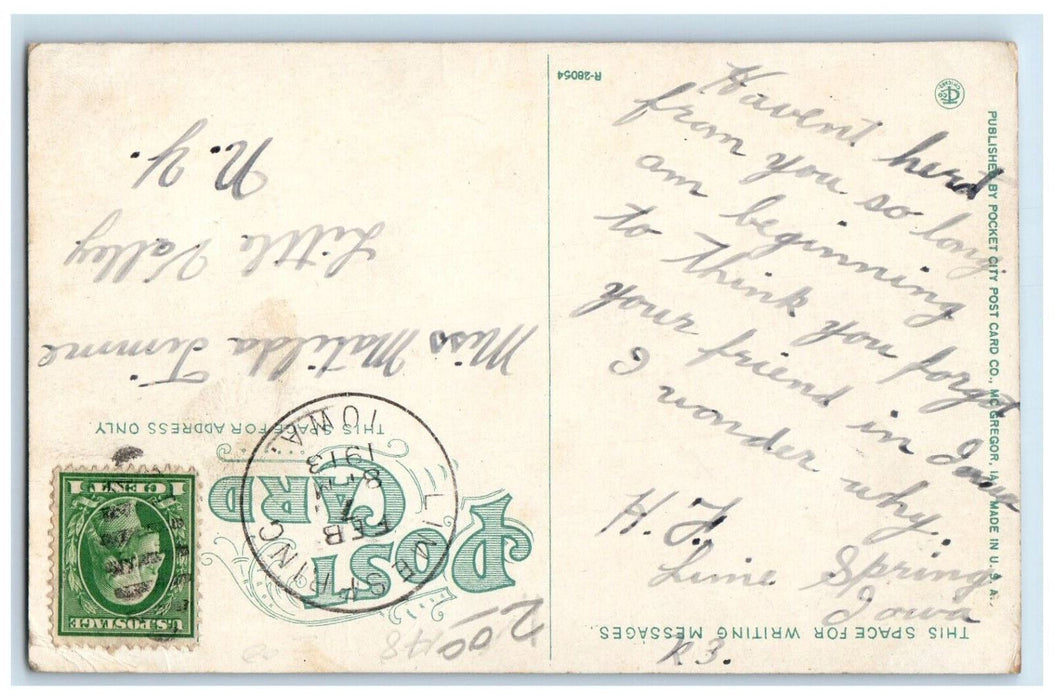 Havent herd
from you so long
am beginning
to think you forgot
your friend in Iowa
I wonder why.
H. F.
Lime Spring
Iowa
R3.
THIS SPACE FOR WRITING MESSAGES.
PUBLISHED BY POCKET CITY POST CARD CO., MC GREGOR, IA. MADE IN U. S. A.
R-28054
POST
CARD
THIS SPACE FOR ADDRESS ONLY
LIME SPRING
FEB
7
8
1913
IOWA
U.S. POSTAGE
1 CENT 1
Miss Matilda Timme
Little Valley
N. Y.
200